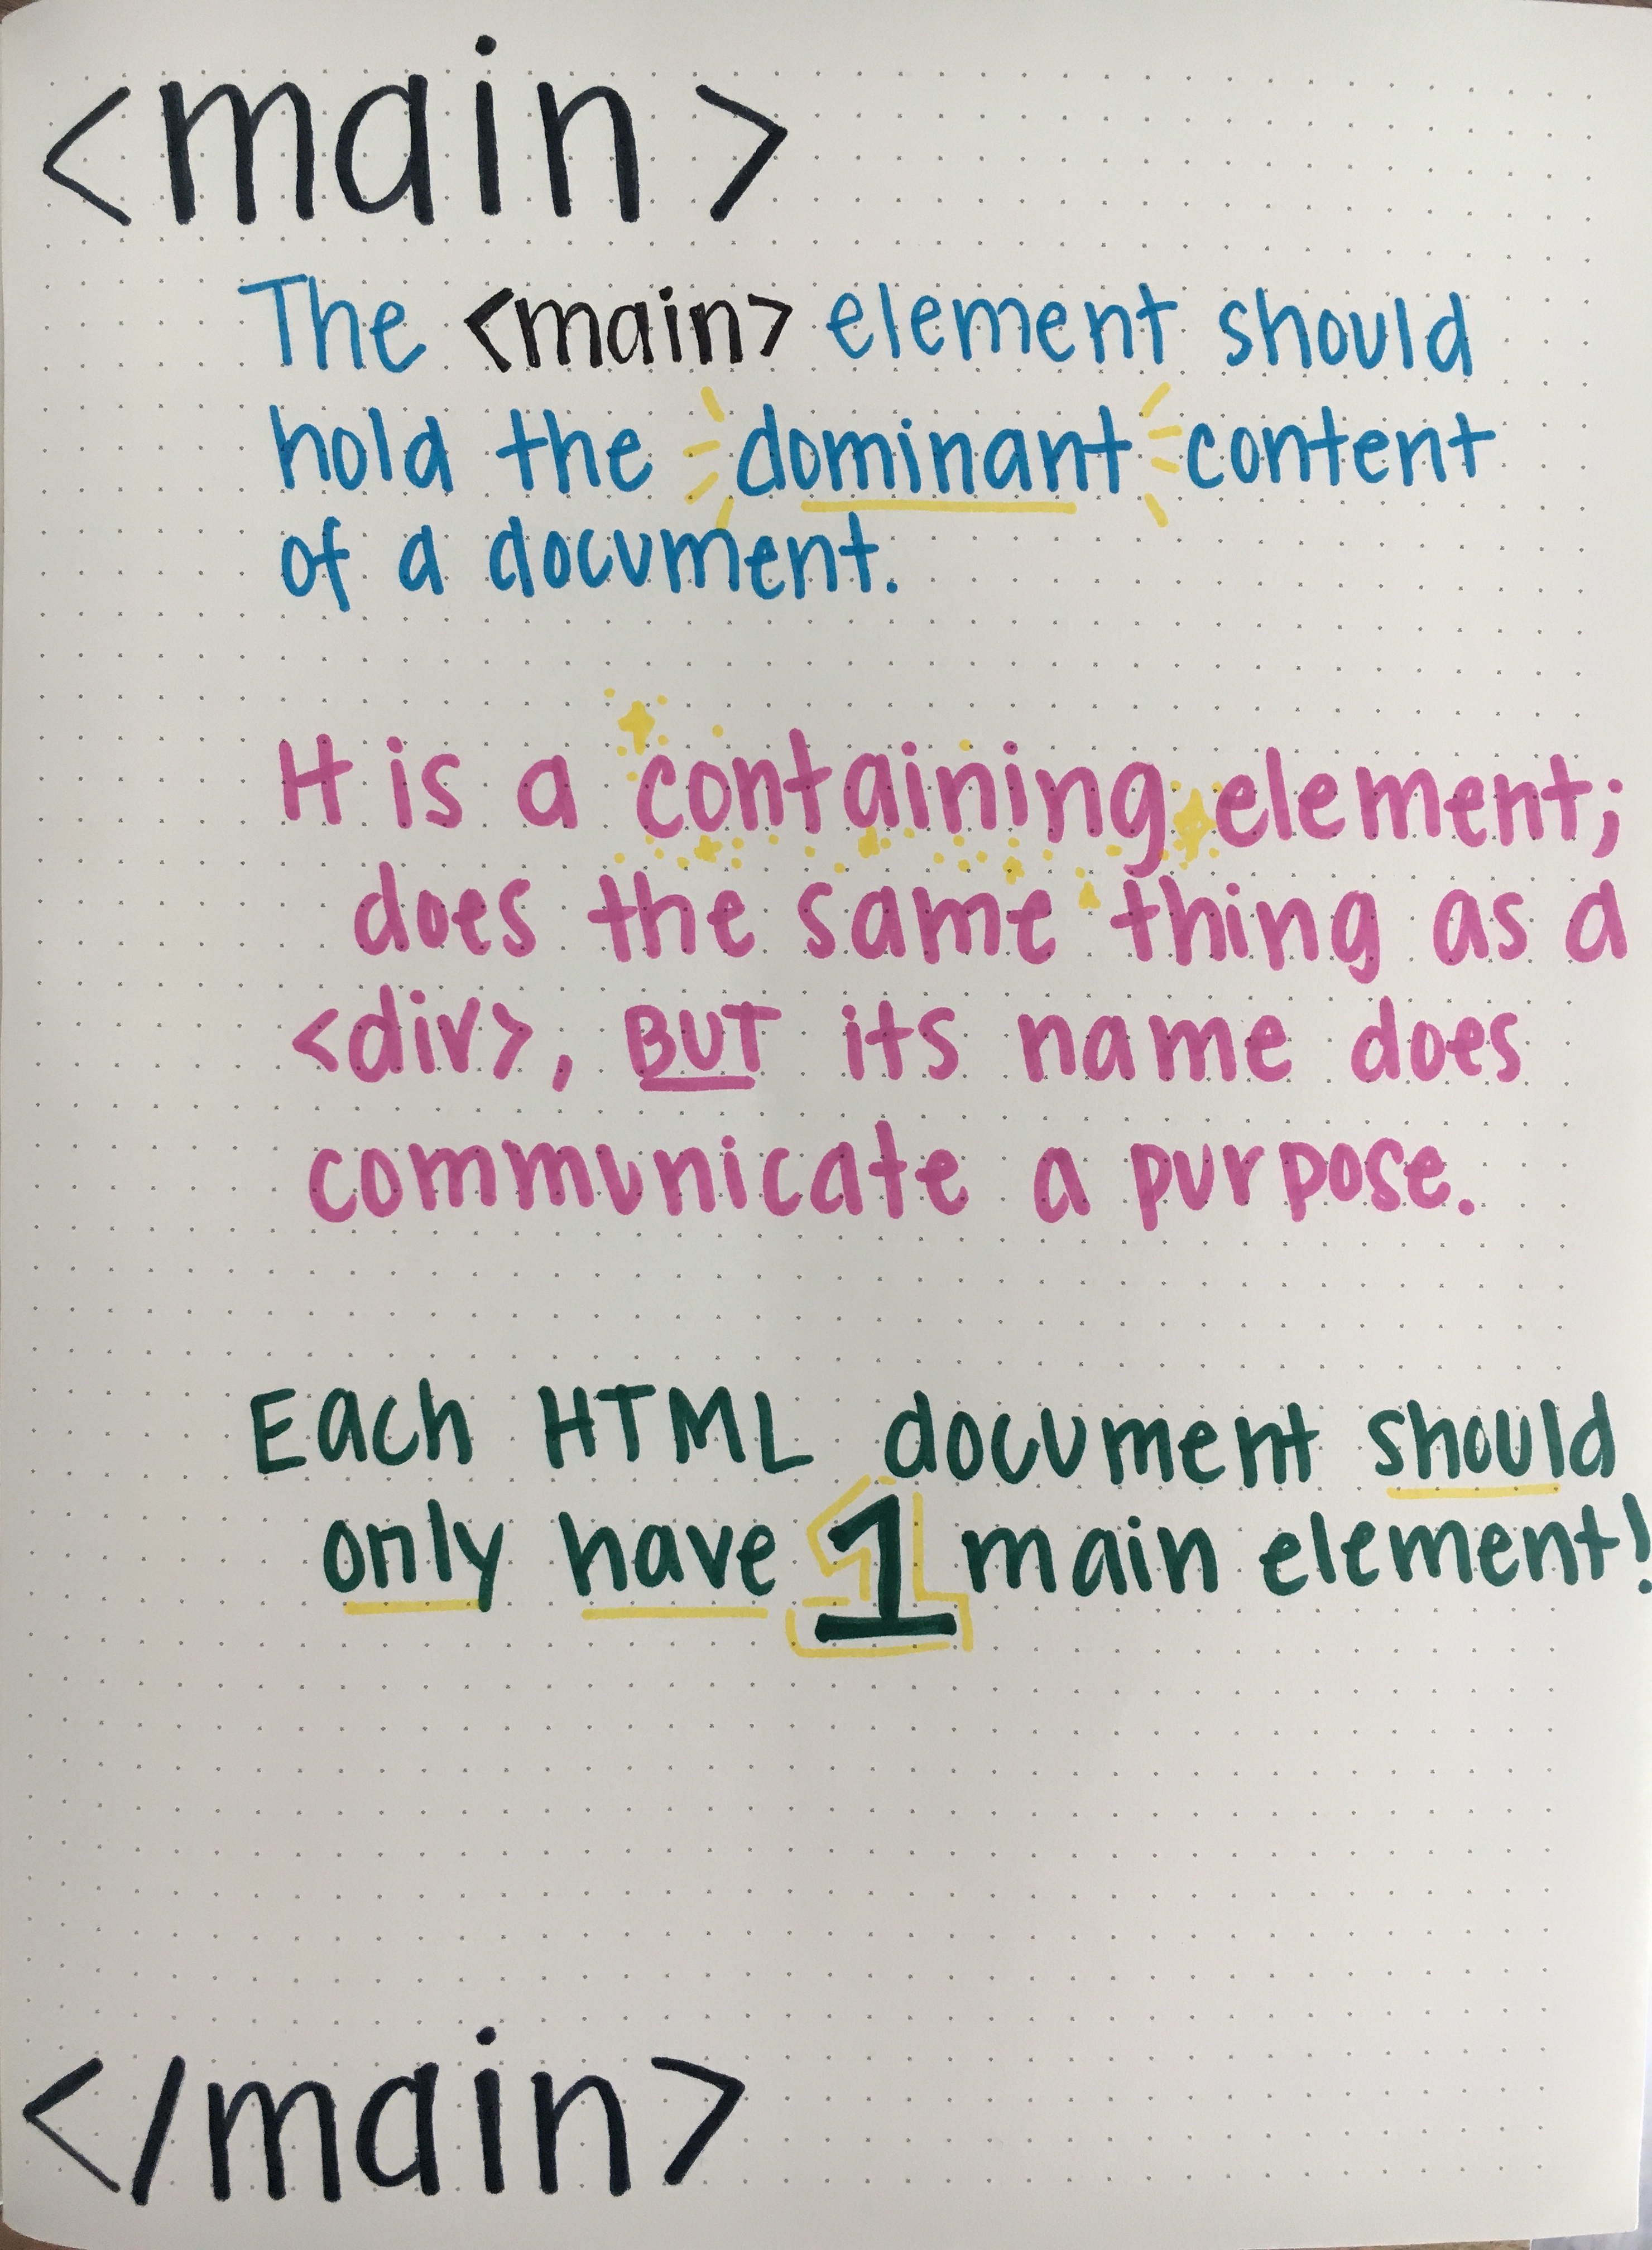 <main>
The <main> element should
hold the dominant content
of a document.
It is a containing element;
does the same thing as a
<div>, BUT its name does
communicate a purpose.
Each HTML document should
only have 1 main element!
</main>